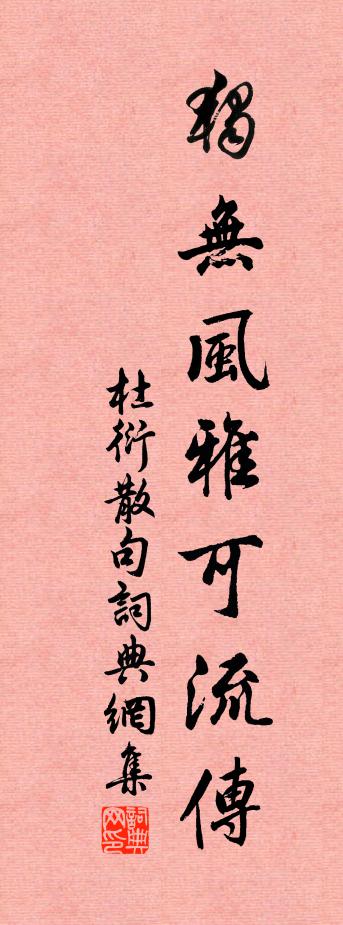 獨無風雅可流傳
杜衍散句詞典網集
詞典网印